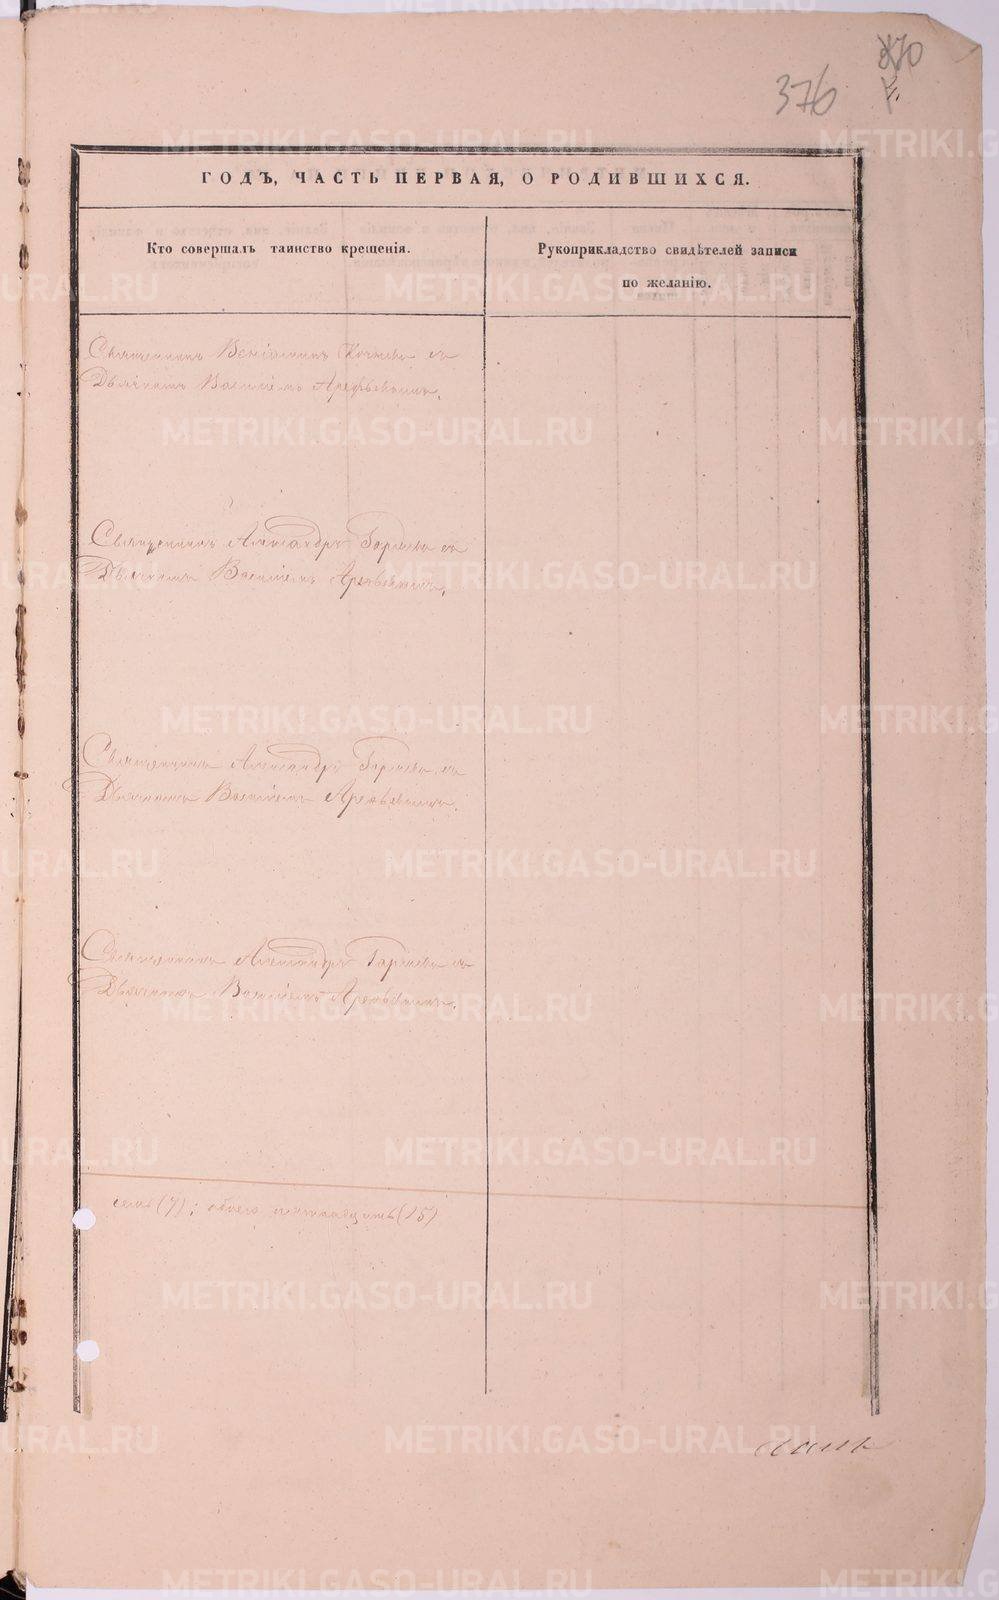 376
ГОДЪ, ЧАСТЬ ПЕРВАЯ, О РОДИВШИХСЯ.
Кто совершалъ таинство крещенія.
Рукоприкладство свидѣтелей записи
по желанію.
Священникъ Веніаминъ съ
Дьячкомъ Василіемъ Арефьевымъ.
Священникъ Александръ съ
Дьячкомъ Василіемъ Арефьевымъ.
Священникъ Александръ съ
Дьячкомъ Василіемъ Арефьевымъ.
Священникъ Александръ съ
Дьячкомъ Василіемъ Арефьевымъ.
семь (7); обоего пятнадцать (15)
METRIKI.GASO-URAL.RU